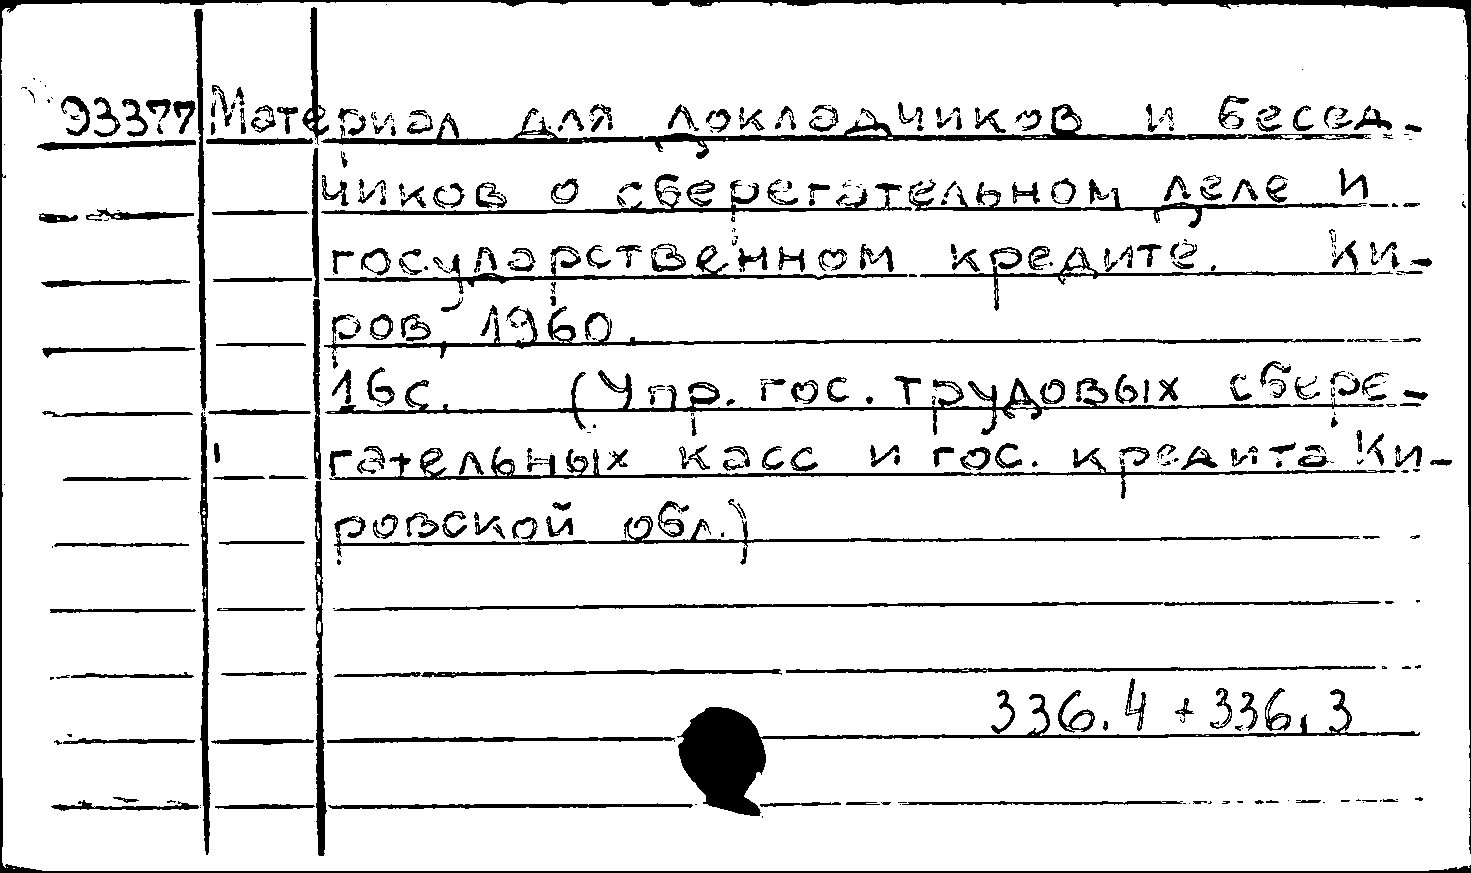 93377 Материал для докладчиков и бесед-
чиков о сберегательном деле и
государственном кредите. Ки-
ров, 1960.
16с. (Упр. гос. трудовых сбере-
гательных касс и гос. кредита Ки-
ровской обл.)
336.4 + 336.3